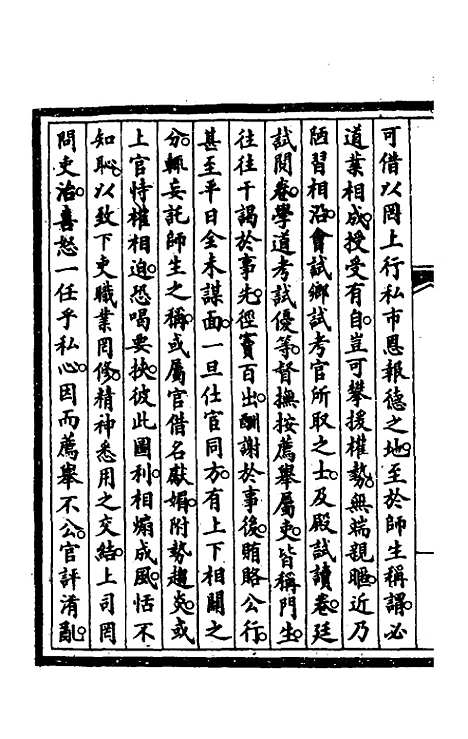 可借以罔上行私市恩報德之地至於師生稱謂必
道業相成授受有自豈可攀援權勢無端親暱近乃
陋習相沿會試鄉試考官所取之士及殿試讀卷廷
試閱卷學道考試優等督撫按薦舉屬吏皆稱門生
往往干謁於事先徑竇百出酬謝於事後賄賂公行
甚至平日全未謀面一旦仕宦同方有上下相關之
分輒妄託師生之稱或屬官借名獻媚附勢趨炎或
上官恃權相迫恐喝要挾彼此圖利相煽成風恬不
知恥以致下吏職業罔修精神悉用之交結上司罔
問吏治喜怒一任乎私心因而薦舉不公官評淆亂